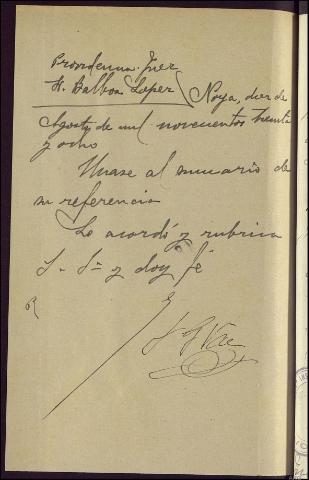 Providencia Juez
H. Balboa Lopez
Noya, diez de
Agosto de mil novecientos treinta
y ocho
Unase al sumario de
su referencia
Lo acordó y rubrica
S. Sª y doy fe